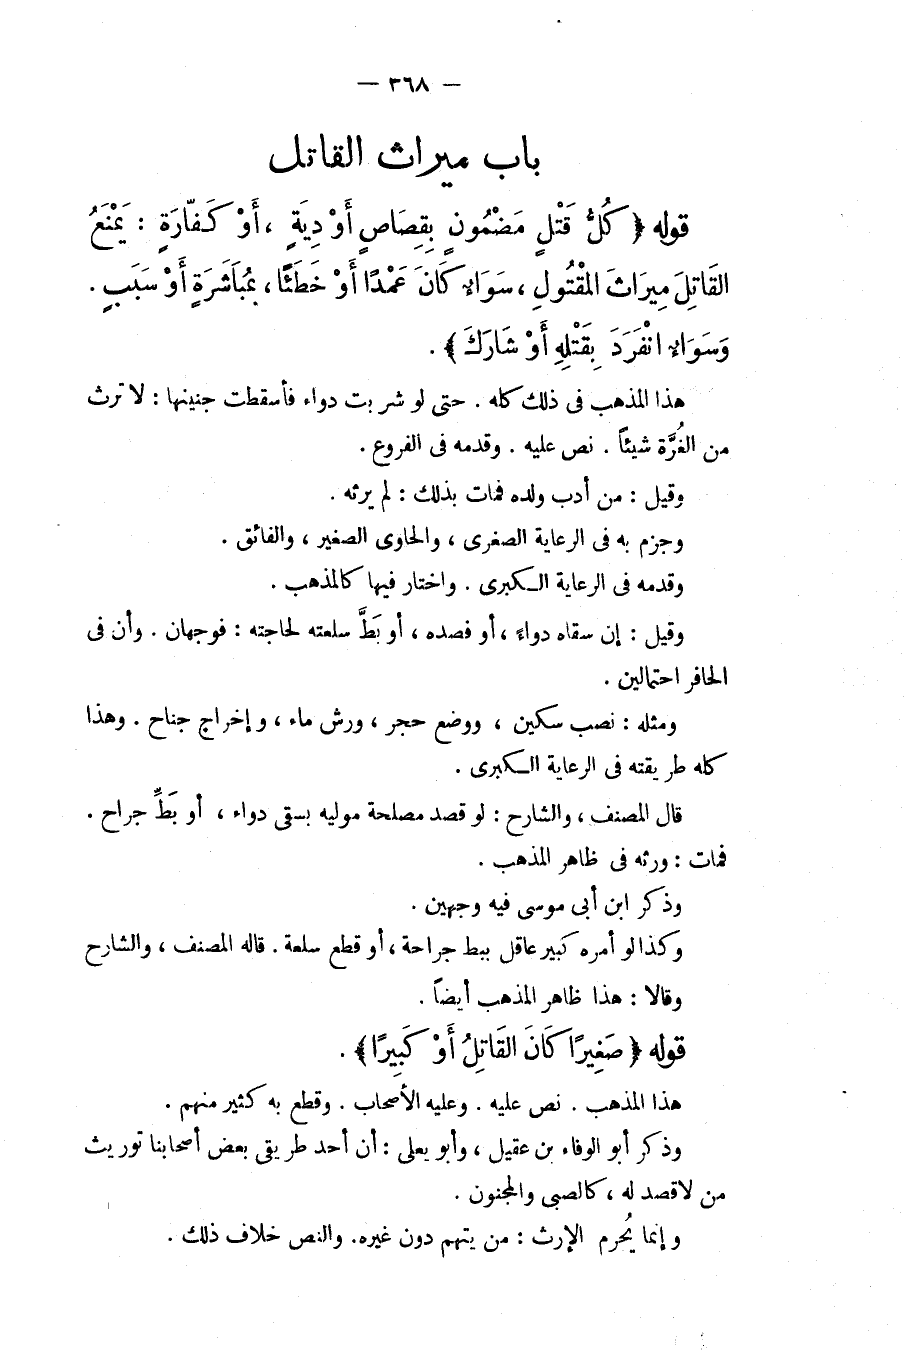 — ٣٦٨ —
باب ميراث القاتل
قوله ﴿ كُلُّ قَتْلٍ مَضْمُونٍ بِقِصَاصٍ أَوْ دِيَةٍ ، أَوْ كَفّارَةٍ : يَمْنَعُ
القَاتِلَ مِيرَاثَ المَقْتُولِ ، سَوَاء كَانَ عَمْدًا أَوْ خَطَئًا ، بِمُبَاشَرَةٍ أَوْ سَبَبٍ .
وَسَوَاء انْفَرَدَ بِقَتْلِهِ أَوْ شَارَكَ ﴾ .
هذا المذهب فى ذلك كله . حتى لو شربت دواء فأسقطت جنينها : لا ترث
من الغُرَّة شيئاً . نص عليه . وقدمه فى الفروع .
وقيل : من أدب ولده فمات بذلك : لم يرثه .
وجزم به فى الرعاية الصغرى ، والحاوى الصغير ، والفائق .
وقدمه فى الرعاية الكبرى . واختار فيها كالمذهب .
وقيل : إن سقاه دواءً ، أو فصده ، أو بَطَّ سلعته لحاجته : فوجهان . وأن فى
الحافر احتمالين .
ومثله : نصب سكين ، ووضع حجر ، ورش ماء ، وإخراج جناح . وهذا
كله طريقته فى الرعاية الكبرى .
قال المصنف ، والشارح : لو قصد مصلحة موليه بسقى دواء ، أو بَطِّ جراح .
فمات : ورثه فى ظاهر المذهب .
وذكر ابن أبى موسى فيه وجهين .
وكذا لو أمره كبير عاقل ببط جراحة ، أو قطع سلعة . قاله المصنف ، والشارح
وقالا : هذا ظاهر المذهب أيضاً .
قوله ﴿ صَغِيرًا كَانَ القَاتِلُ أَوْ كَبِيرًا ﴾ .
هذا المذهب . نص عليه . وعليه الأصحاب . وقطع به كثير منهم .
وذكر أبو الوفاء بن عقيل ، وأبو يعلى : أن أحد طريقى بعض أصحابنا توريث
من لا قصد له ، كالصبى والمجنون .
وإنما يُحرم الإرث : من يتهم دون غيره. والنص خلاف ذلك .